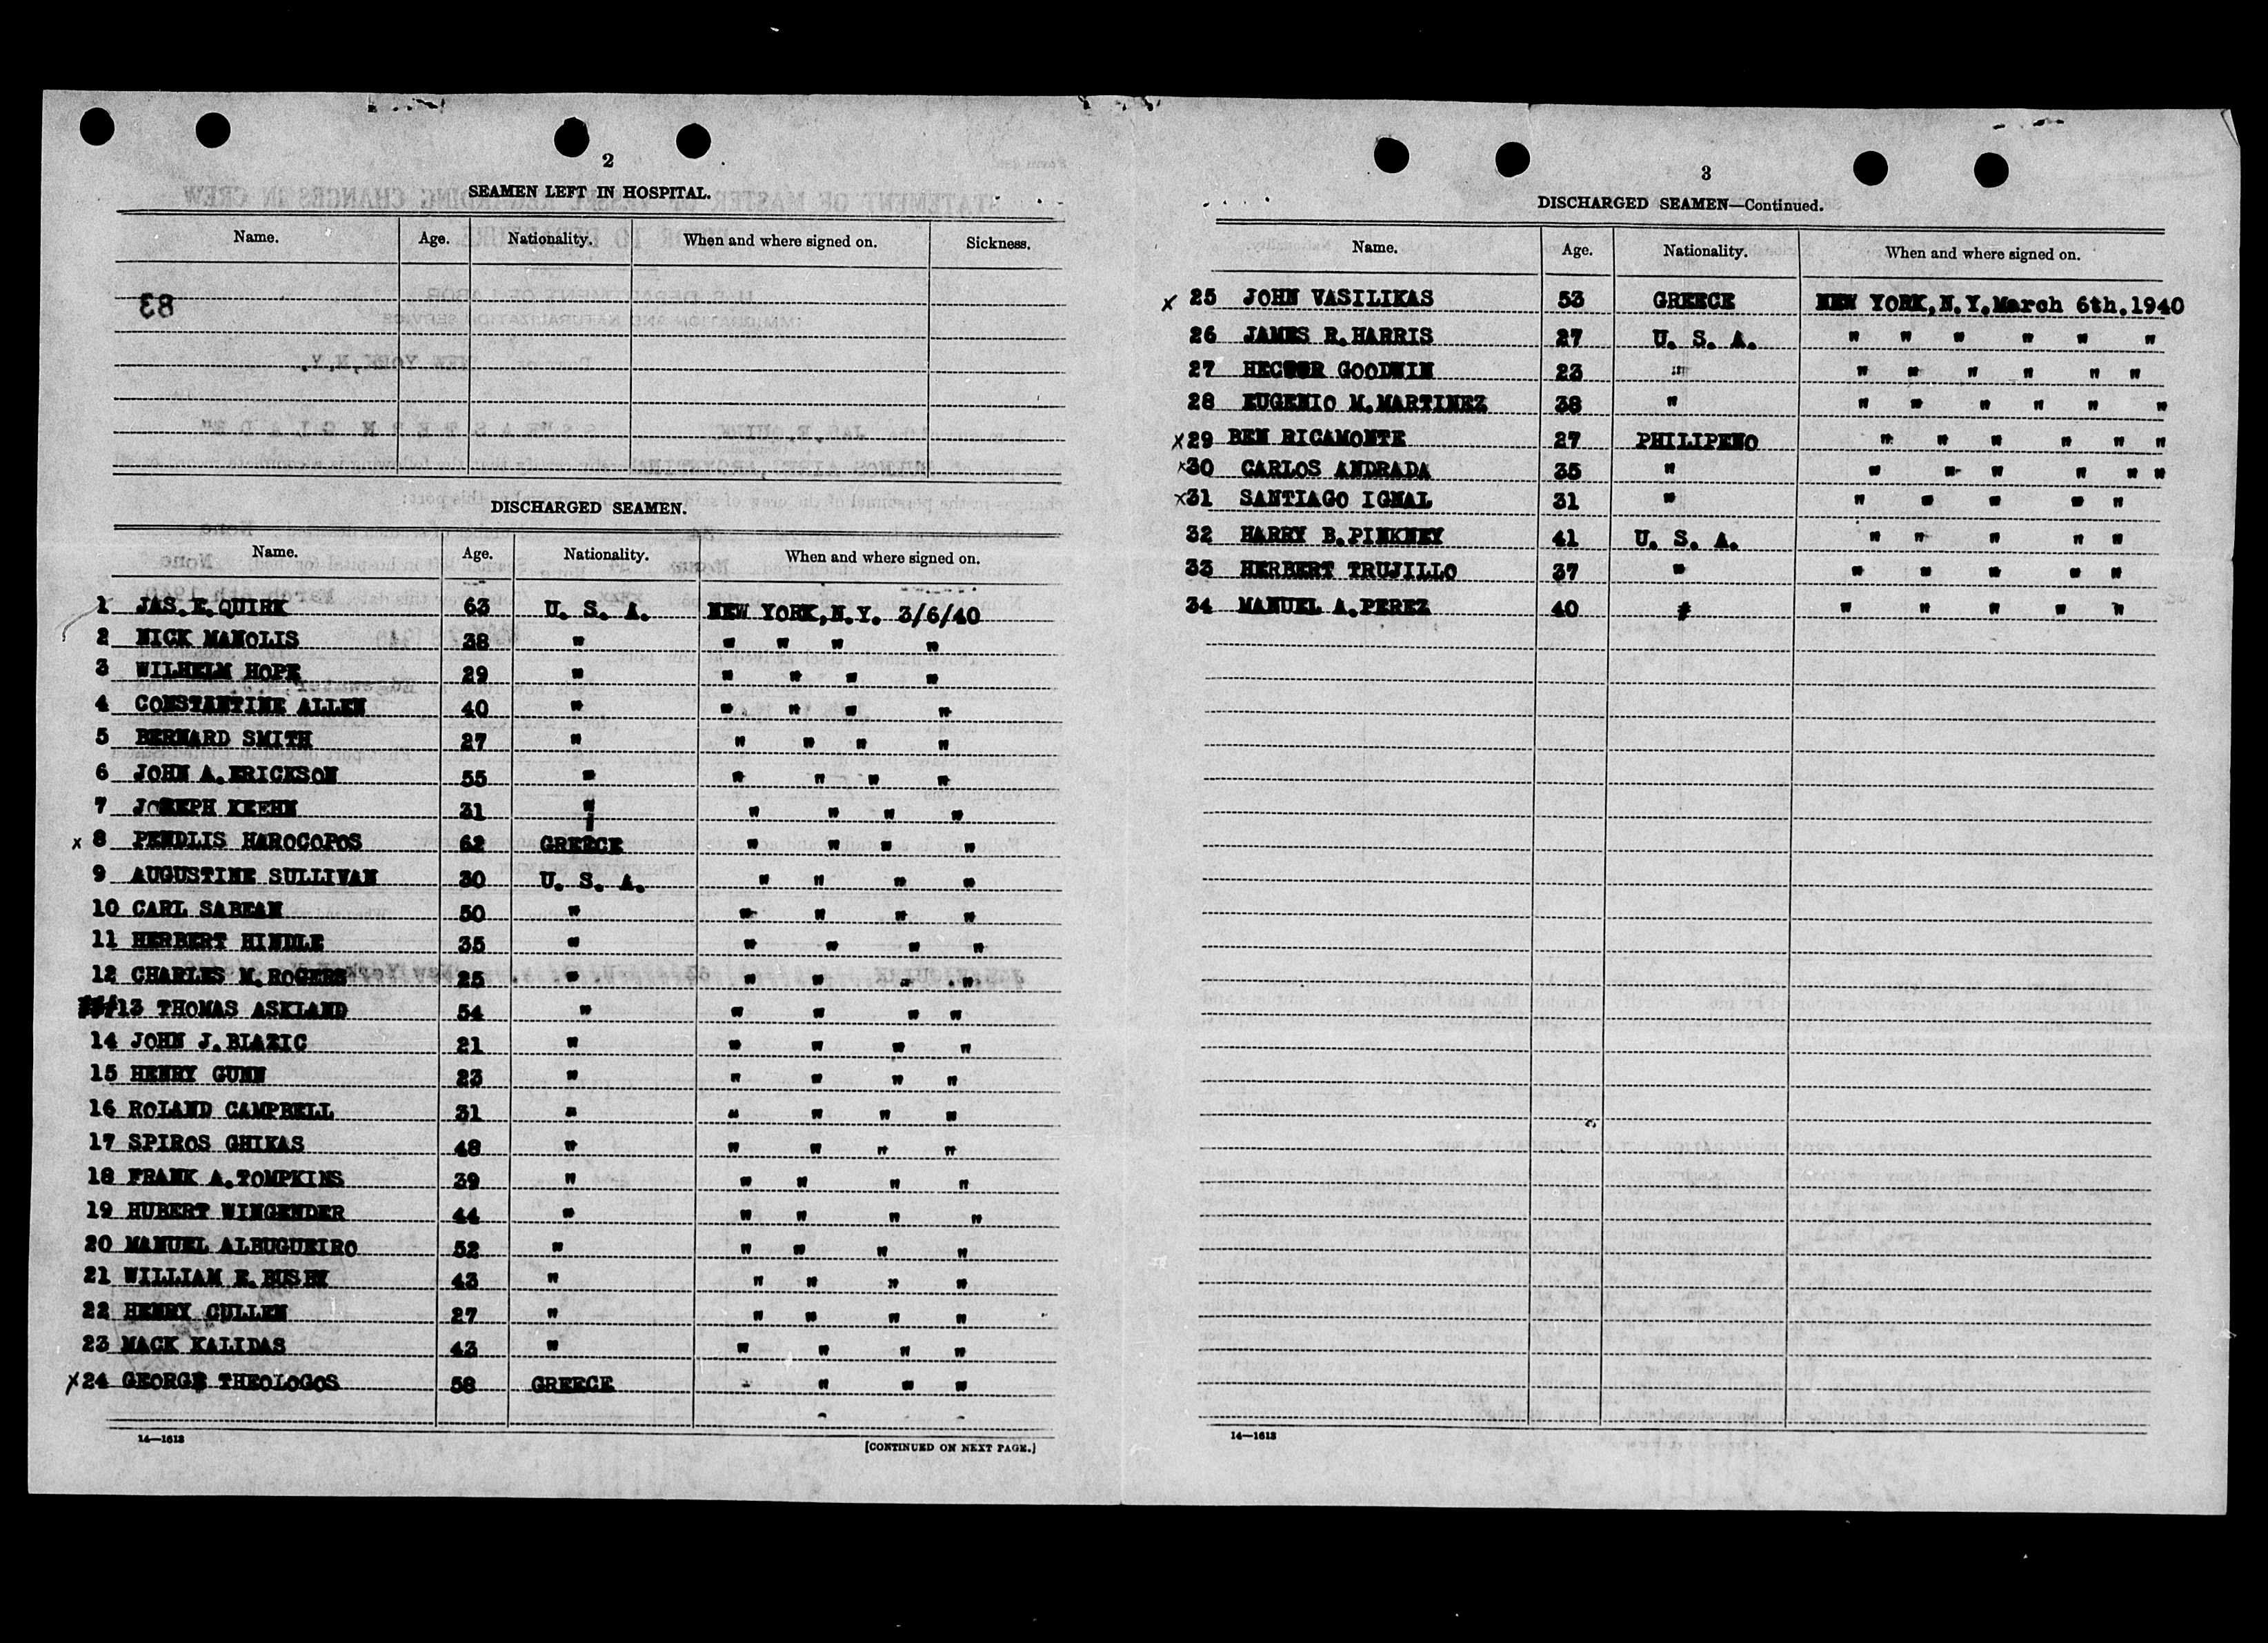 2
SEAMEN LEFT IN HOSPITAL.
Name. Age. Nationality. When and where signed on. Sickness.
83
DISCHARGED SEAMEN.
Name. Age. Nationality. When and where signed on.
1 JAS. E. QUIRK 63 U. S. A. NEW YORK, N. Y. 3/6/40
2 NICK MANOLIS 38 " " " " "
3 WILHELM HOPE 29 " " " " "
4 CONSTANTINE ALLEN 40 " " " " "
5 BERNARD SMITH 27 " " " " "
6 JOHN A. ERICKSON 55 " " " " "
7 JOSEPH KEEHN 31 " " " " "
x 8 PENDLIS HAROCOPOS 62 GREECE " " " "
9 AUGUSTINE SULLIVAN 30 U. S. A. " " " "
10 CARL SABEAN 50 " " " " "
11 HERBERT HINDLE 35 " " " " "
12 CHARLES M. ROGERS 25 " " " " "
13 THOMAS ASKLAND 54 " " " " "
14 JOHN J. BLAZIC 21 " " " " "
15 HENRY GUNN 23 " " " " "
16 ROLAND CAMPBELL 31 " " " " "
17 SPIROS GHIKAS 48 " " " " "
18 FRANK A. TOMPKINS 39 " " " " "
19 HUBERT WINGENDER 44 " " " " "
20 MANUEL ALBUGUEIRO 52 " " " " "
21 WILLIAM E. BUSBY 43 " " " " "
22 HENRY CULLEN 27 " " " " "
23 MACK KALIDAS 43 " " " " "
x 24 GEORGE THEOLOGOS 58 GREECE " " " "
14—1613
[CONTINUED ON NEXT PAGE.]
3
DISCHARGED SEAMEN—Continued.
Name. Age. Nationality. When and where signed on.
x 25 JOHN VASILIKAS 53 GREECE NEW YORK, N. Y. March 6th. 1940
26 JAMES R. HARRIS 27 U. S. A. " " " " " "
27 HECTOR GOODWIN 23 " " " " " " "
28 EUGENIO M. MARTINEZ 38 " " " " " " "
x 29 BEN RICAMONTE 27 PHILIPENO " " " " " "
x 30 CARLOS ANDRADA 35 " " " " " " "
x 31 SANTIAGO IGNAL 31 " " " " " "
32 HARRY B. PINKNEY 41 U. S. A. " " " " "
33 HERBERT TRUJILLO 37 " " " " " "
34 MANUEL A. PEREZ 40 " " " " " "
14—1613